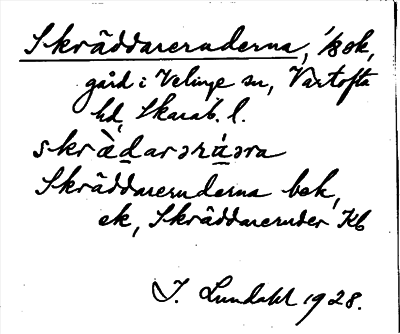 Skräddareruderna, 
gård i Velinge sn, Vartofta
hd, Skarab. l.
skrädarərúəra
Skräddareruderna bek,
ek, Skräddareruder Kb
J. Lundahl 1928.